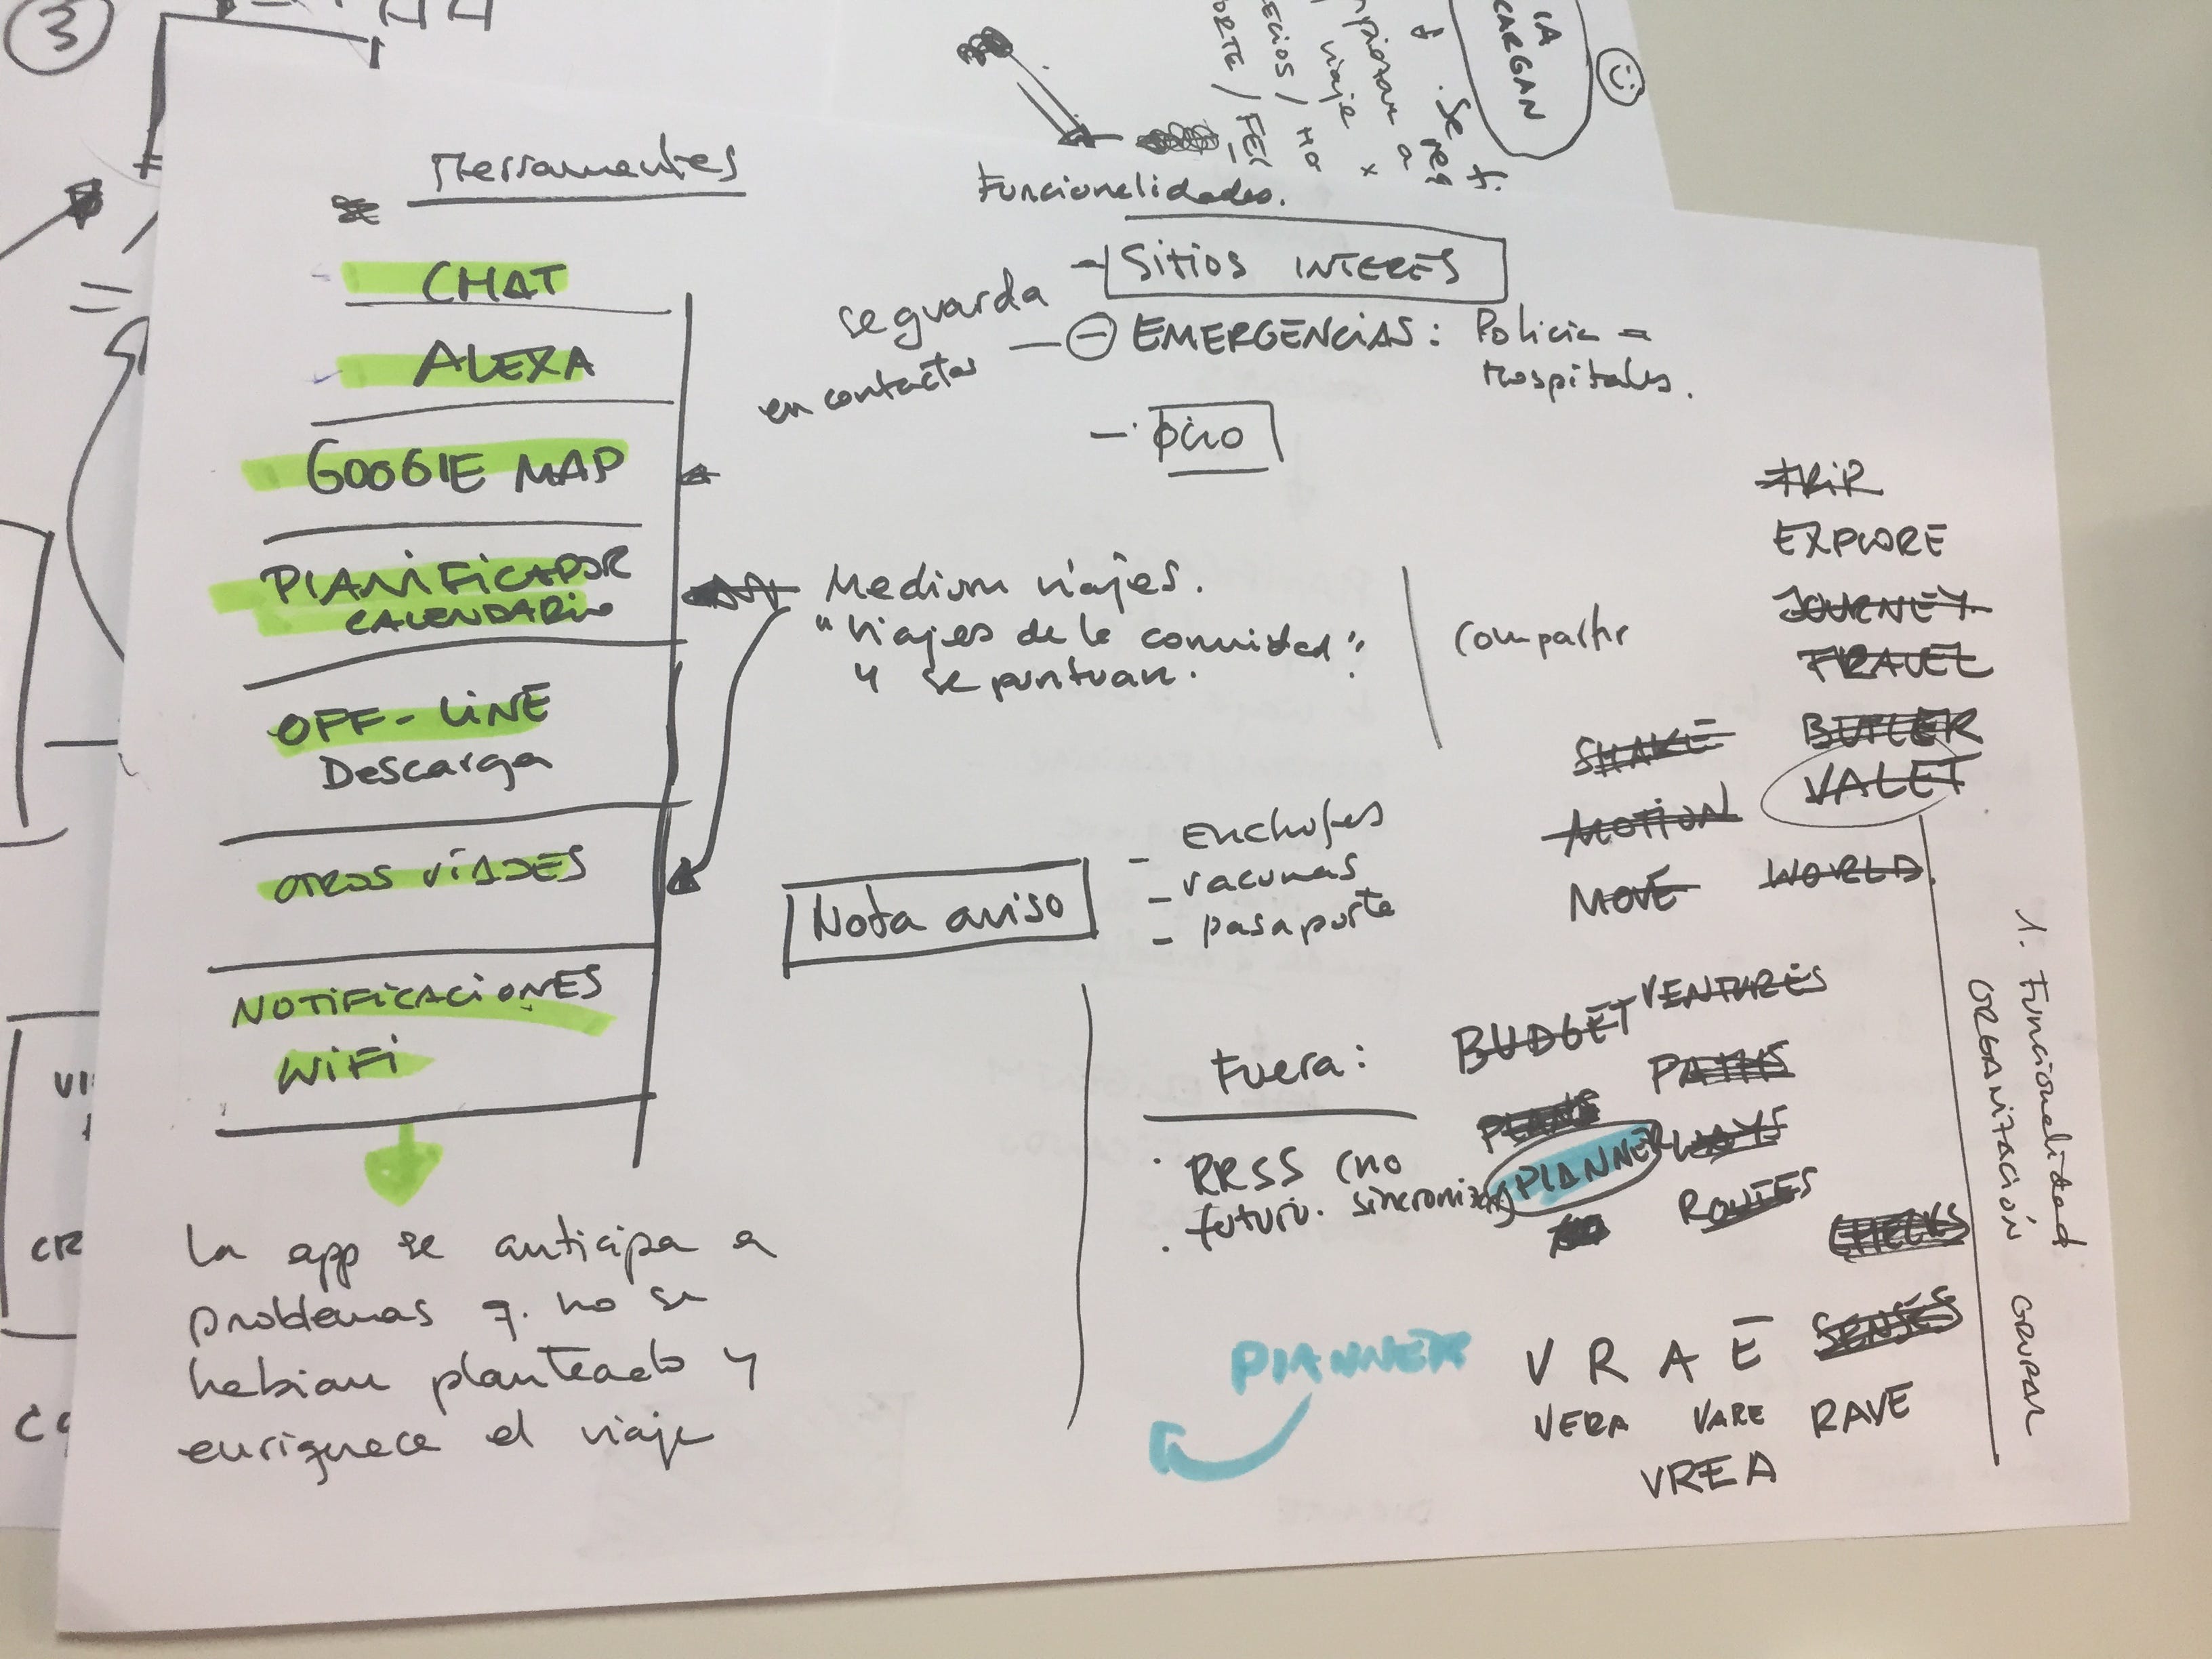 3
Herramientas
CHAT
ALEXA
GOOGlE MAP
PlANiFiCADOR
CALENDARIO
OFF-LiNE
Descarga
OTROS ViAJES
NOTiFiCACiONES
WiFi
La app se anticipa a
problemas q. no se
habian planteado y
enriquece el viaje
Funcionalidades.
- Sitios INTERES
se guarda
en contactos
- EMERGENCiAS: Policia -
Hospitales.
- ocio
Medium viajes.
"Viajes de la comunidad".
y se puntuan.
Compartir
Nota aviso
- Enchufes
- vacunas
- pasaporte
TRiP
EXPLORE
JOURNEY
TRAVEL
BUTLER
VALET
SHAKE
MOTION
MOVE
WORLD
Fuera:
· RRSS (no
· futuro. sincronizar
BUDGET
VENTURES
PATHS
PLANS
PlANNER
WAYS
ROUTES
CHECKS
SENSES
PlANNER
V R A E
VERA VARE RAVE
VREA
1. Funcionalidad
ORGANiZACiÓN GRUPAL
CARGAN
viaje
VI
CR